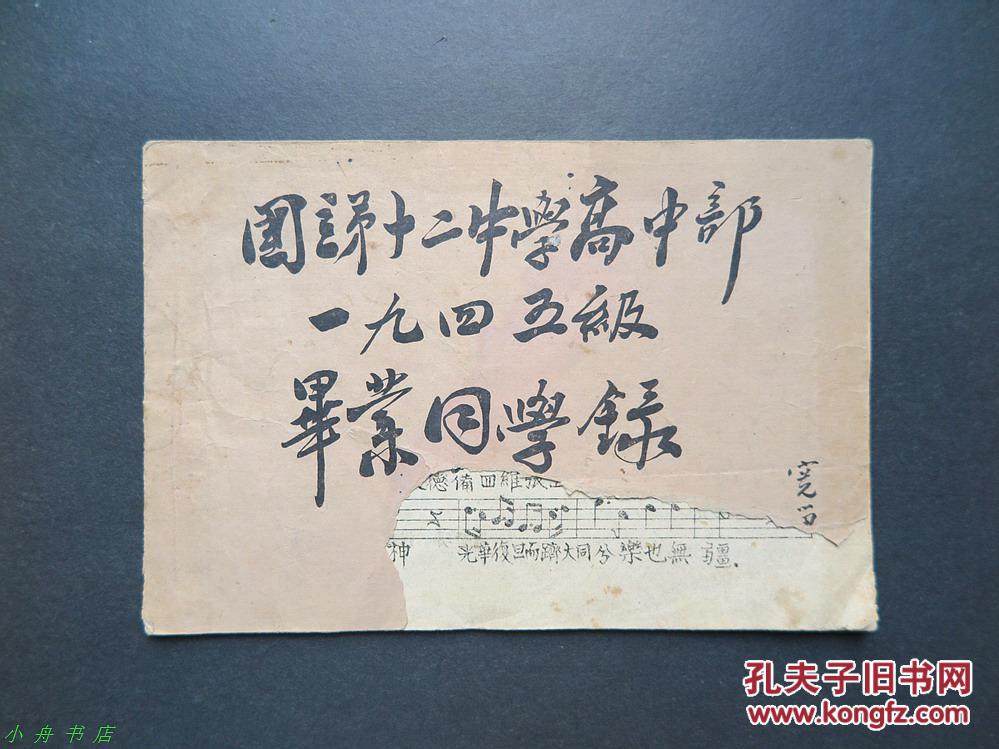 國立第十二中學高中部
一九四五級
畢業同學錄
德備四維張
神 光華復旦而躋大同兮樂也無疆.
孔夫子旧书网
www.kongfz.com
小舟书店